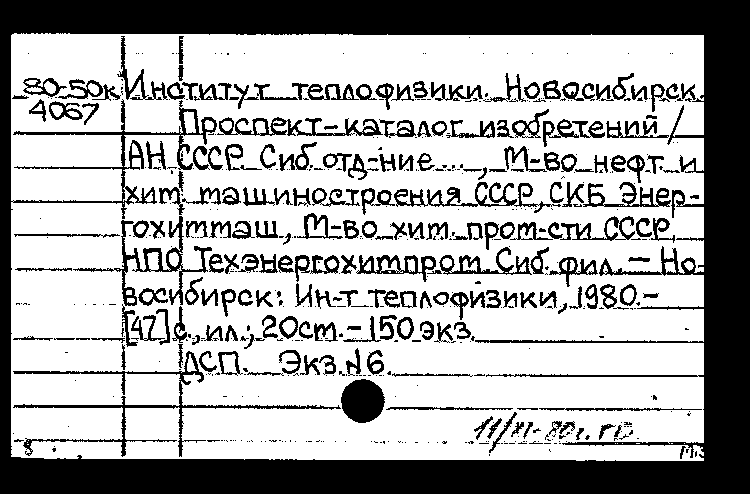 80-50к Институт теплофизики. Новосибирск.
4067
Проспект-каталог изобретений /
АН СССР. Сиб. отд-ние ... , М-во нефт. и
хит.ташиностроения СССР, СКБ Энер-
гохитташ, М-во хит. прот-сти СССР,
НПО Техэнергохитпрот. Сиб. фил. — Но-
восибирск: Ин-т теплофизики, 1980.-
[47] с., ил.; 20ст. - 150 экз.
ДСП. Экз. №6.
11/XI-80г.
8